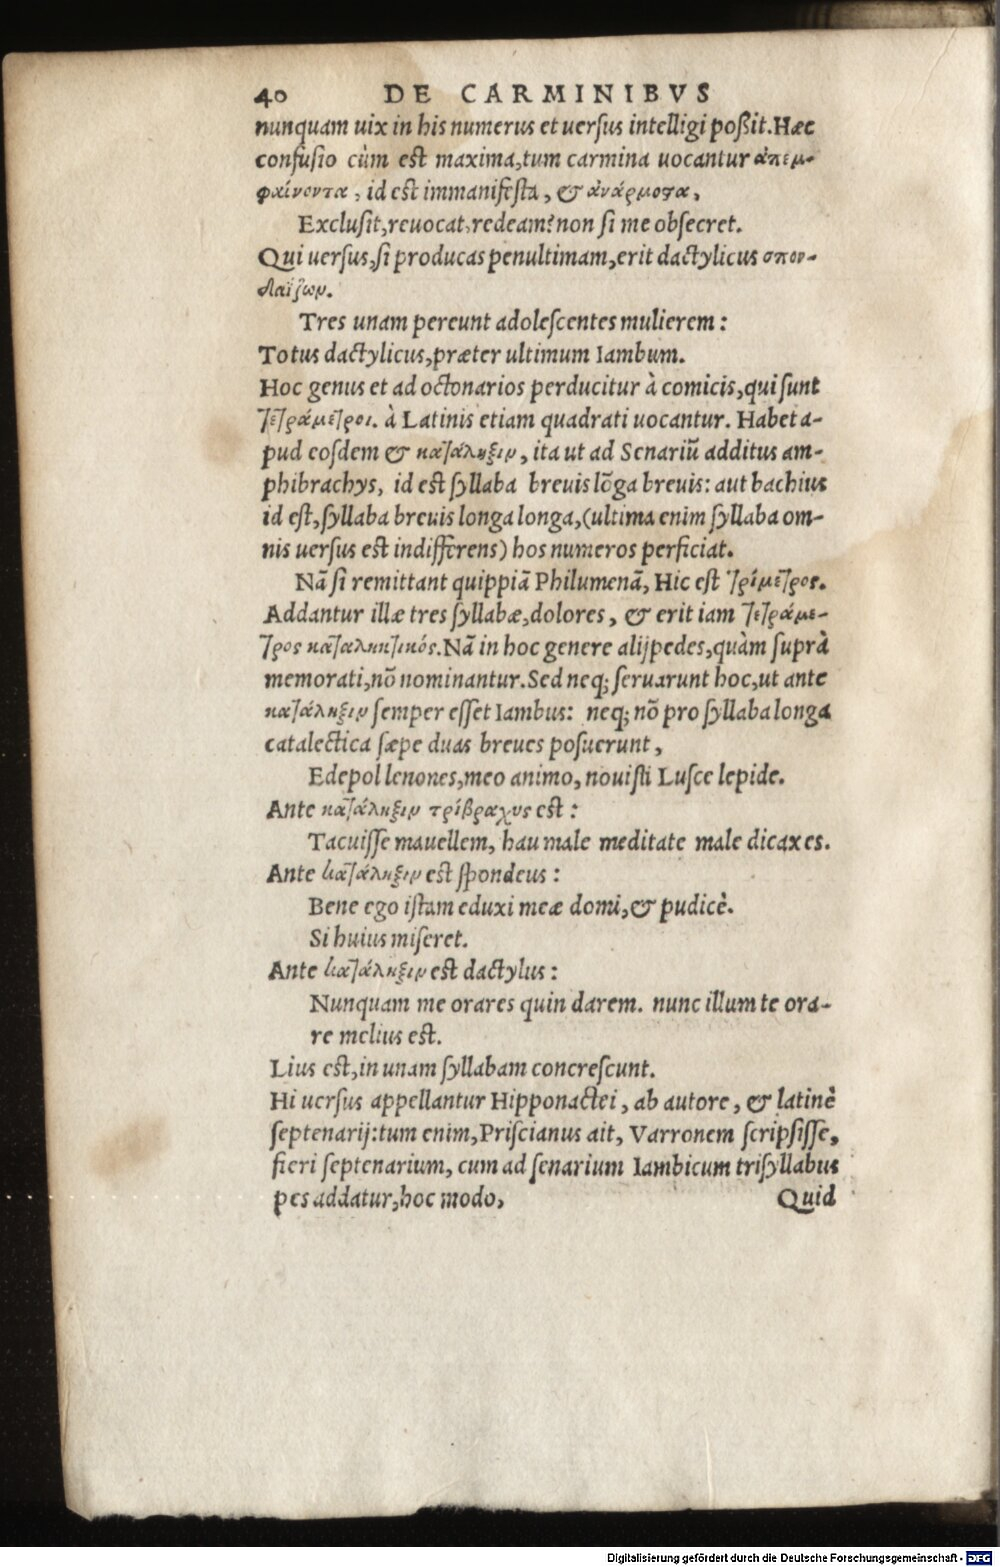 40 DE CARMINIBVS
nunquam uix in his numerus et uersus intelligi poßit. Hæc
confusio cùm est maxima, tum carmina uocantur ἀπεμ-
φαίνοντα, id est immanifesta, & ἀνάρμοστα,
Exclusit, reuocat, redeam? non si me obsecret.
Qui uersus, si producas penultimam, erit dactylicus σπον-
δαΐζων.
Tres unam pereunt adolescentes mulierem:
Totus dactylicus, præter ultimum Iambum.
Hoc genus et ad octonarios perducitur à comicis, qui sunt
τετράμετροι. à Latinis etiam quadrati uocantur. Habet a-
pud eosdem & κατάληξιν, ita ut ad Senariũ additus am-
phibrachys, id est syllaba breuis lõga breuis: aut bachius
id est, syllaba breuis longa longa, (ultima enim syllaba om-
nis uersus est indifferens) hos numeros perficiat.
Nã si remittant quippiã Philumenã, Hic est τρίμετρος.
Addantur illæ tres syllabæ, dolores, & erit iam τετράμε-
τρος καταληκτικός. Nã in hoc genere alijpedes, quàm suprà
memorati, nõ nominantur. Sed neq; seruarunt hoc, ut ante
κατάληξιν semper esset Iambus: neq; nõ pro syllaba longa
catalectica sæpe duas breues posuerunt,
Edepol lenones, meo animo, nouisti Lusce lepide.
Ante κατάληξιν τρίβραχυς est:
Tacuisse mauellem, hau male meditate male dicaxes.
Ante κατάληξιν est spondeus:
Bene ego istam eduxi meæ domi, & pudicè.
Si huius miseret.
Ante κατάληξιν est dactylus:
Nunquam me orares quin darem. nunc illum te ora-
re melius est.
Lius est, in unam syllabam concrescunt.
Hi uersus appellantur Hipponactei, ab autore, & latinè
septenarij: tum enim, Priscianus ait, Varronem scripsisse,
fieri septenarium, cum ad senarium Iambicum trisyllabus
pes addatur, hoc modo, Quid
Digitalisierung gefördert durch die Deutsche Forschungsgemeinschaft - DFG